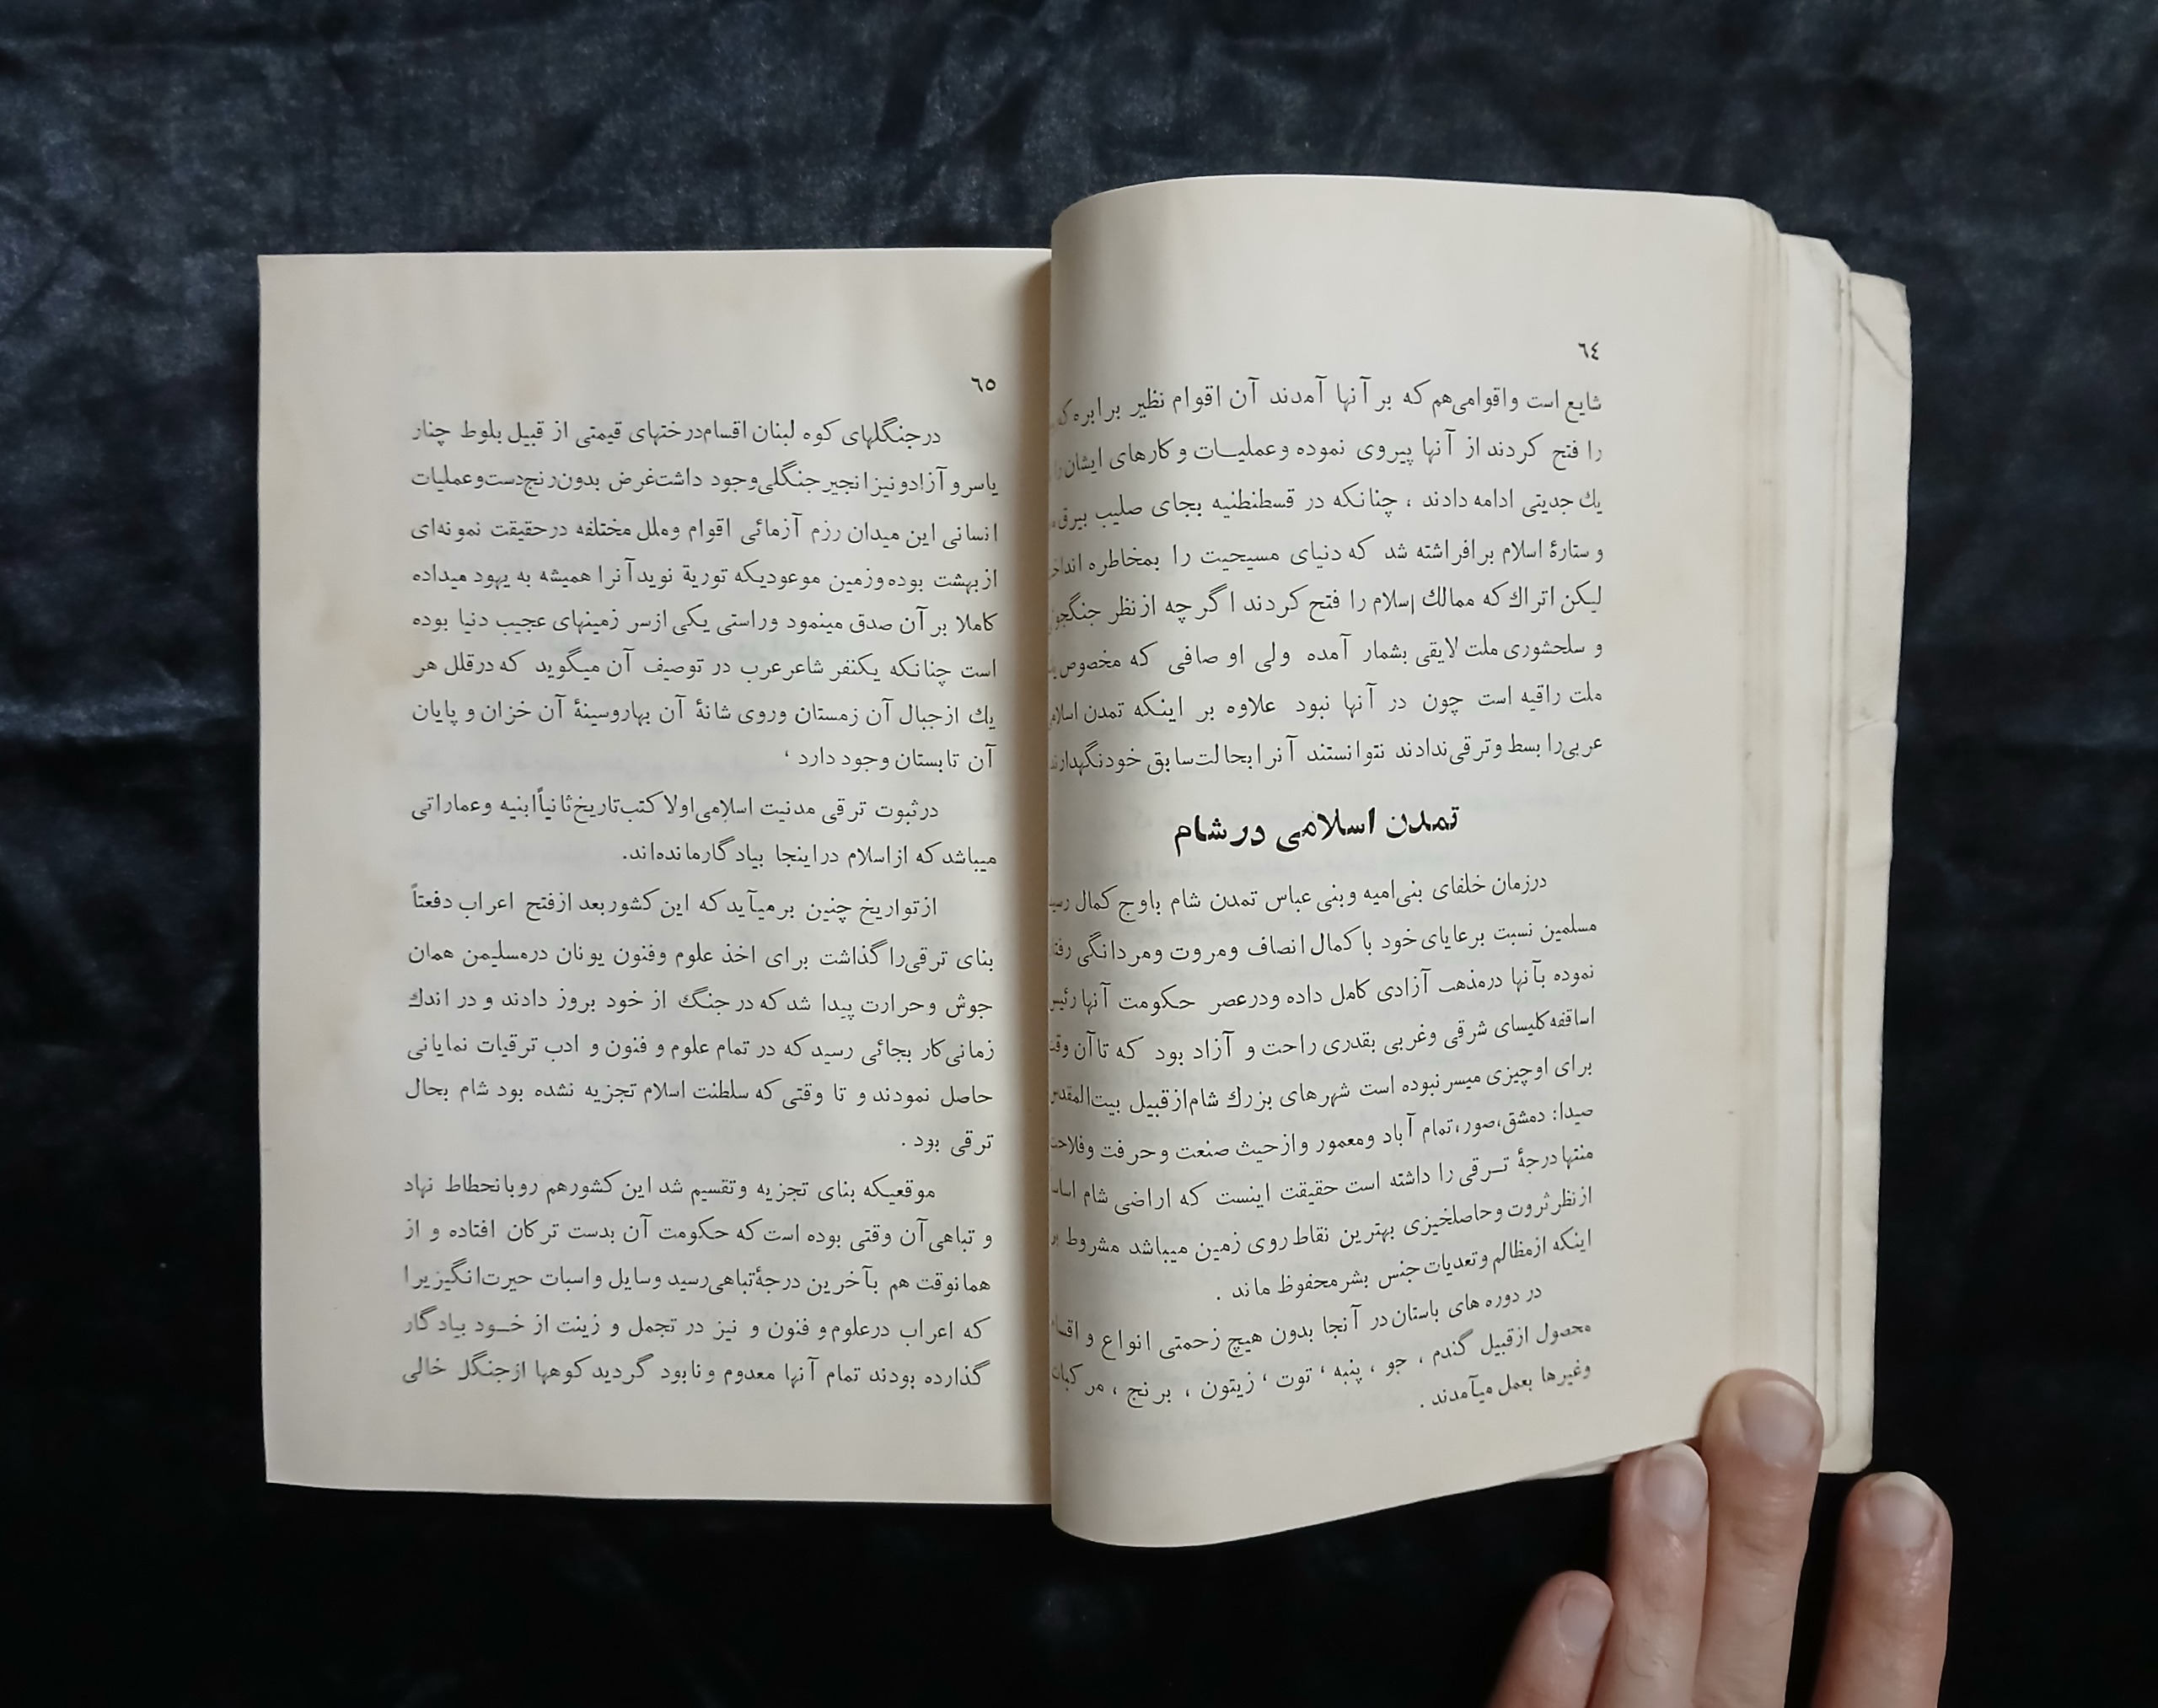 ٦٤
شایع است واقوامی‌هم که بر آنها آمدند آن اقوام نظیر برابره
را فتح کردند از آنها پیروی نموده وعملیات و کارهای ایشان
یك جدیتی ادامه دادند ، چنانکه در قسطنطنیه بجای صلیب بیرق
و ستارهٔ اسلام برافراشته شد که دنیای مسیحیت را بمخاطره
لیکن اتراك که ممالك إسلام را فتح کردند اگر چه از نظر
و سلحشوری ملت لایقی بشمار آمده ولی او صافی که مخصوص
ملت راقیه است چون در آنها نبود علاوه بر اینکه تمدن
عربی‌را بسط وترقی‌ندادند نتوانستند آنرا بحالت‌سابق
تمدن اسلامی در شام
درزمان خلفای بنی‌امیه وبنی عباس تمدن شام باوج کمال
مسلمین نسبت برعایای خود با کمال انصاف ومروت ومردانگی
نموده بآنها درمذهب آزادی کامل داده ودرعصر حکومت آنها
اساقفه کلیسای شرقی وغربی بقدری راحت و آزاد بود که تاآن
برای اوچیزی میسر نبوده است شهرهای بزرك شام‌از قبیل بیت‌المقدس
صیدا: دمشق،صور،تمام آباد ومعمور وازحیث صنعت وحرفت وفلاحت
منتها درجهٔ تـرقی را داشته است حقیقت اینست که اراضی شام
از نظر ثروت وحاصلخیزی بهترین نقاط روی زمین میباشد مشروط
اینکه ازمظالم وتعدیات جنس بشر محفوظ ماند .
در دوره های باستان در آنجا بدون هیچ زحمتی انواع و
محصول ازقبیل گندم ، جو ، پنبه ، توت ، زیتون ، برنج ،
وغیرها بعمل میآمدند .
٦٥
درجنگلهای کوه لبنان اقسام‌درختهای قیمتی از قبیل بلوط چنار
یاسر و آزادو نیز انجیر جنگلی‌وجود داشت‌غرض بدون‌رنج‌دست‌وعملیات
انسانی این میدان رزم آزمائی اقوام وملل مختلفه درحقیقت نمونه‌ای
از بهشت بوده وزمین موعودیکه توریة نوید آنرا همیشه به یهود میداده
کاملا بر آن صدق مینمود وراستی یکی ازسر زمینهای عجیب دنیا بوده
است چنانکه یکنفر شاعر عرب در توصیف آن میگوید که درقلل هر
یك ازجبال آن زمستان وروی شانهٔ آن بهاروسینهٔ آن خزان و پایان
آن تابستان وجود دارد ،
درثبوت ترقی مدنیت اسلامی‌اولا کتب‌تاریخ‌ثانیاً‌ابنیه وعماراتی
میباشد که ازاسلام دراینجا بیادگار مانده‌اند.
ازتواریخ چنین برمیآید که این کشور بعد ازفتح اعراب دفعتاً
بنای ترقی‌را گذاشت برای اخذ علوم وفنون یونان درمسلیمن همان
جوش وحرارت پیدا شد که در جنگ از خود بروز دادند و در اندك
زمانی کار بجائی رسید که در تمام علوم و فنون و ادب ترقیات نمایانی
حاصل نمودند و تا وقتی که سلطنت اسلام تجزیه نشده بود شام بحال
ترقی بود .
موقعیکه بنای تجزیه وتقسیم شد این کشورهم روبانحطاط نهاد
و تباهی آن وقتی بوده است که حکومت آن بدست ترکان افتاده و از
همانوقت هم بآخرین درجهٔ‌تباهی‌رسید وسایل واسبات حیرت‌انگیزیرا
که اعراب درعلوم و فنون و نیز در تجمل و زینت از خـود بیادگار
گذارده بودند تمام آنها معدوم ونابود گردید کوهها ازجنگل خالی